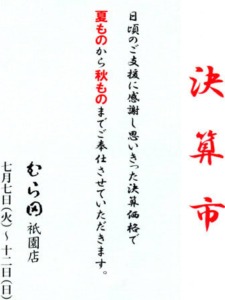 決算市
日頃のご支援に感謝し思いきった決算価格で
夏ものから秋ものまでご奉仕させていただきます。
むら田 祇園店
七月七日(火)~十二日(日)